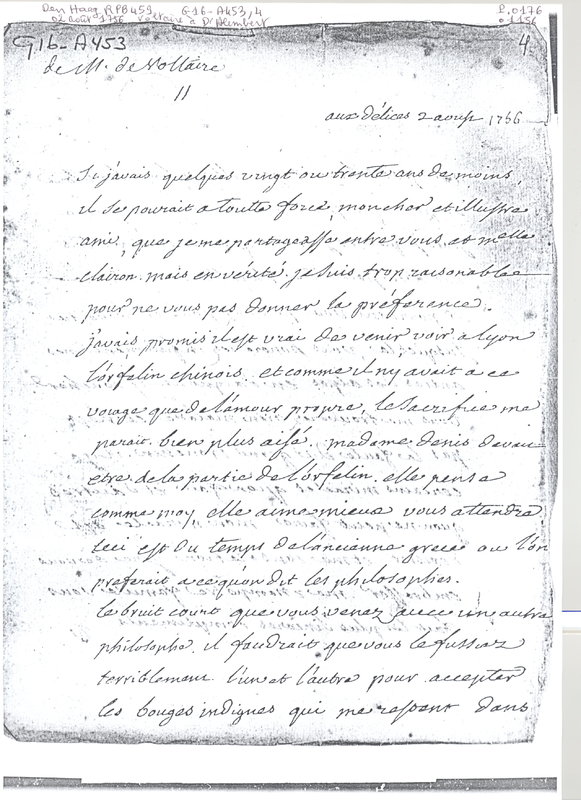 Den Haag RPB 459 G16-A453,4 P.0176
02 août 1756 Voltaire à D'Alembert 01156
G16-A453 4
de M. de Voltaire
//
aux délices 2 aoust 1756
Si j'avais quelques vingt ou trente ans de moins,
il se pourait a toutte force, mon cher et illustre
ami, que je me partageasse entre vous et melle
clairon. mais en vérité je suis trop raisonable
pour ne vous pas donner la préference.
j'avais promis il est vrai de venir voir a lyon
l'orfelin chinois. et comme il ny avait a ce
voiage que de l'amour propre, le sacrifice me
parait bien plus aisé. madame denis devait
etre de la partie de l'orfelin. elle pense
comme moy, elle aime mieux vous attendre
ceci est du temps de l'ancienne grece ou l'on
preferait a ce qu'on dit les philosophes.
le bruit court que vous venez avec un autre
philosophe. il faudrait que vous le fussiez
terriblement l'un et l'autre pour accepter
les bouges indignes qui me restent dans